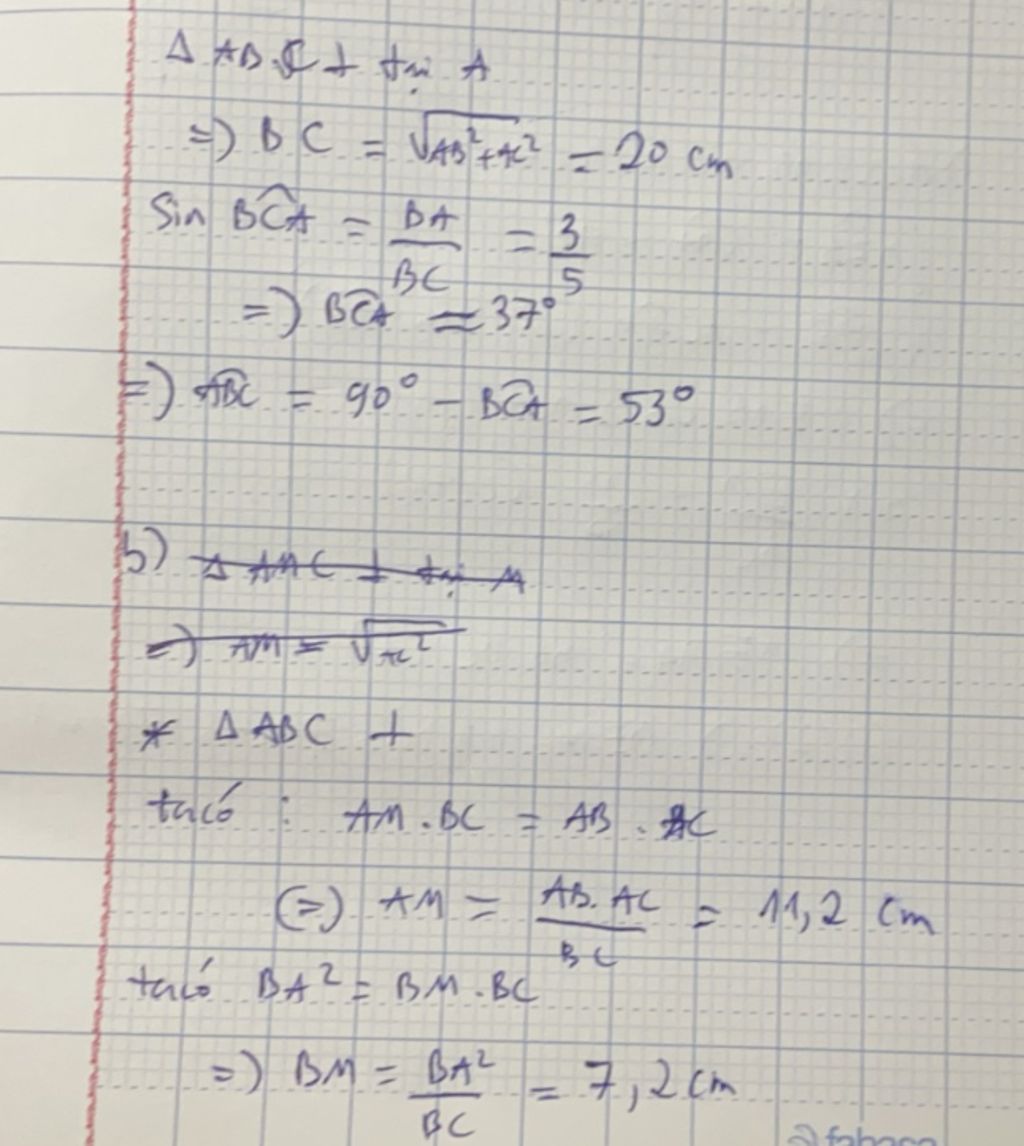 Δ ABC ⊥ tại A
=) BC = √AB²+AC² = 20 cm
Sin BCA = BA/BC = 3/5
=) BCA ≈ 37°
=) ABC = 90° - BCA = 53°
b) Δ AMC ⊥ tại M
=) AM = √AC²
* Δ ABC ⊥
ta có : AM . BC = AB . AC
(=) AM = AB. AC/BC = 11,2 cm
ta có BA² = BM . BC
=) BM = BA²/BC = 7,2 cm